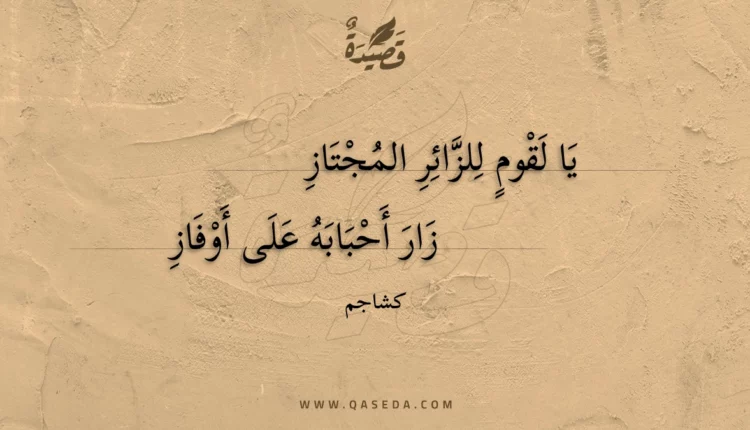 قَصِيدَةٌ
يَا لَقْومٍ لِلزَّائِرِ المُجْتَازِ
زَارَ أَحْبَابَهُ عَلَى أَوْفَازِ
كشاجم
WWW.QASEDA.COM